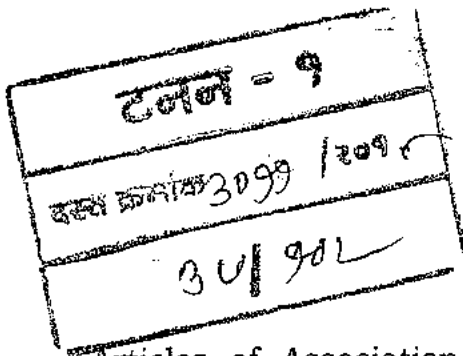 टनन - १
दस्त क्रमांक ३०११ /२०१
Articles of Association